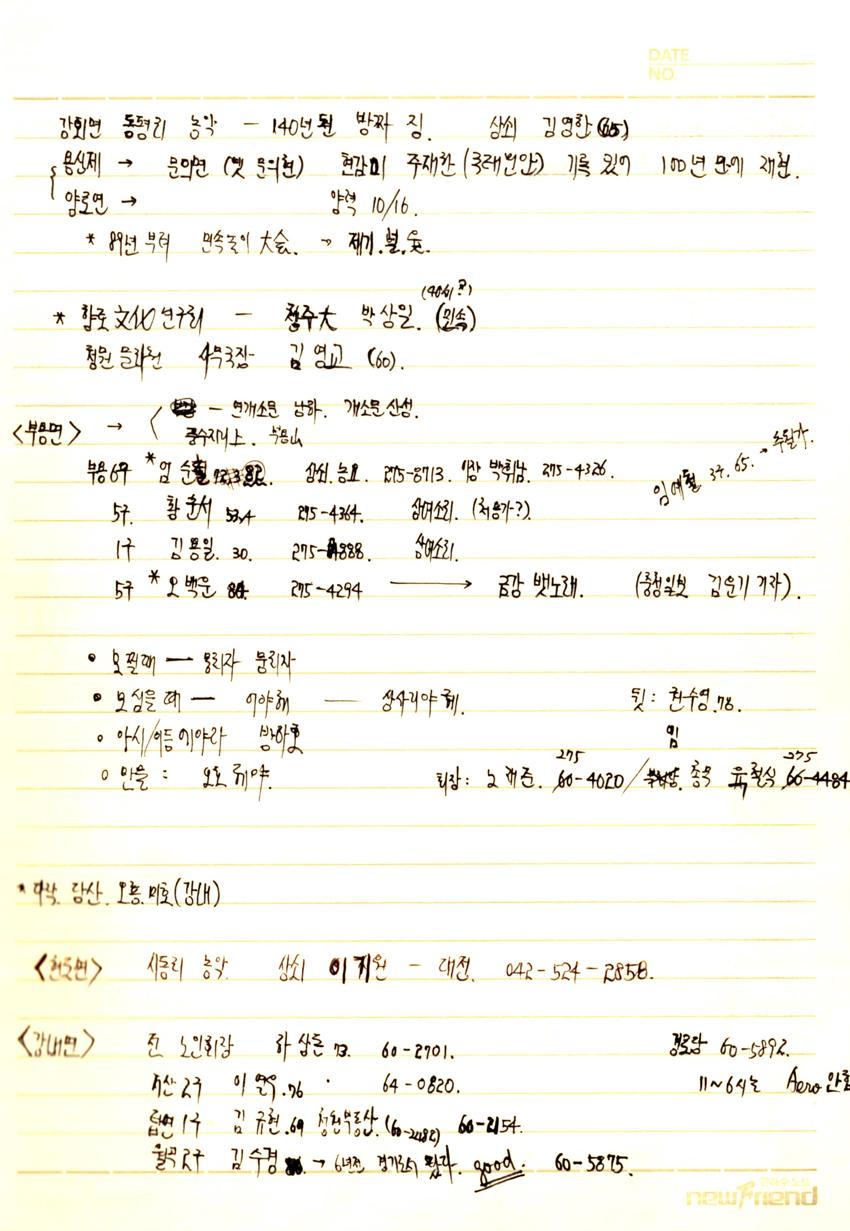 DATE
NO.
강외면 동평리 농악 - 140년된 방짜 징. 상쇠 김영환 (65)
용신제 → 문의면 (옛 문의현) 현감이 주재한 기록 있어 100년 만에 재현.
양로연 → 양력 10/16.
* 89년부터 민속놀이 大会. → 제기. 널. 윷.
(40세?)
* 향토文化연구회 - 청주大 박상일. (민속)
청원 문화원 사무국장 김영교 (60).
<부용면> → - 연개소문 남하. 개소문산성.
풍수지리上. 부용山
부용6구 * 엄순 상쇠. 농요. 275-8713. 이장 박휘남. 275-4326.
임예철 3구. 65. →
5구. 황준서 53. 275-4364. 상여소리. (처용가?)
1구 김용일. 30. 275-4888. 상여소리.
5구 * 오백운 275-4294 → 금강 뱃노래. (충청일보 김운기 기자).
• 모찔때 — 뭉리자 뭉리자
• 모심을때 — 어야헤 — 상사리야 헤. 뒷: 천수영. 78.
• 아시/이듬 에야라 방아호 임
○ 만물: 오호헤야. 회장: 노재준. 275 60-4020 / 총무 육철식 275 60-4484
* 당산. 오송. 미호 (강내)
<현도면> 시동리 농악. 상쇠 이지원 - 대전. 042-524-2858.
<강내면> 전 노인회장 하상돈 73. 60-2701. 경로당 60-5892.
2구 이 .76 64-0820. 11~6시는 Aero
탑연1구 김규현. 69 청원부동산. (60-2482) 60-2154.
월곡2구 김수경 → 6년전 경기소리 good. 60-5875.
newFriend